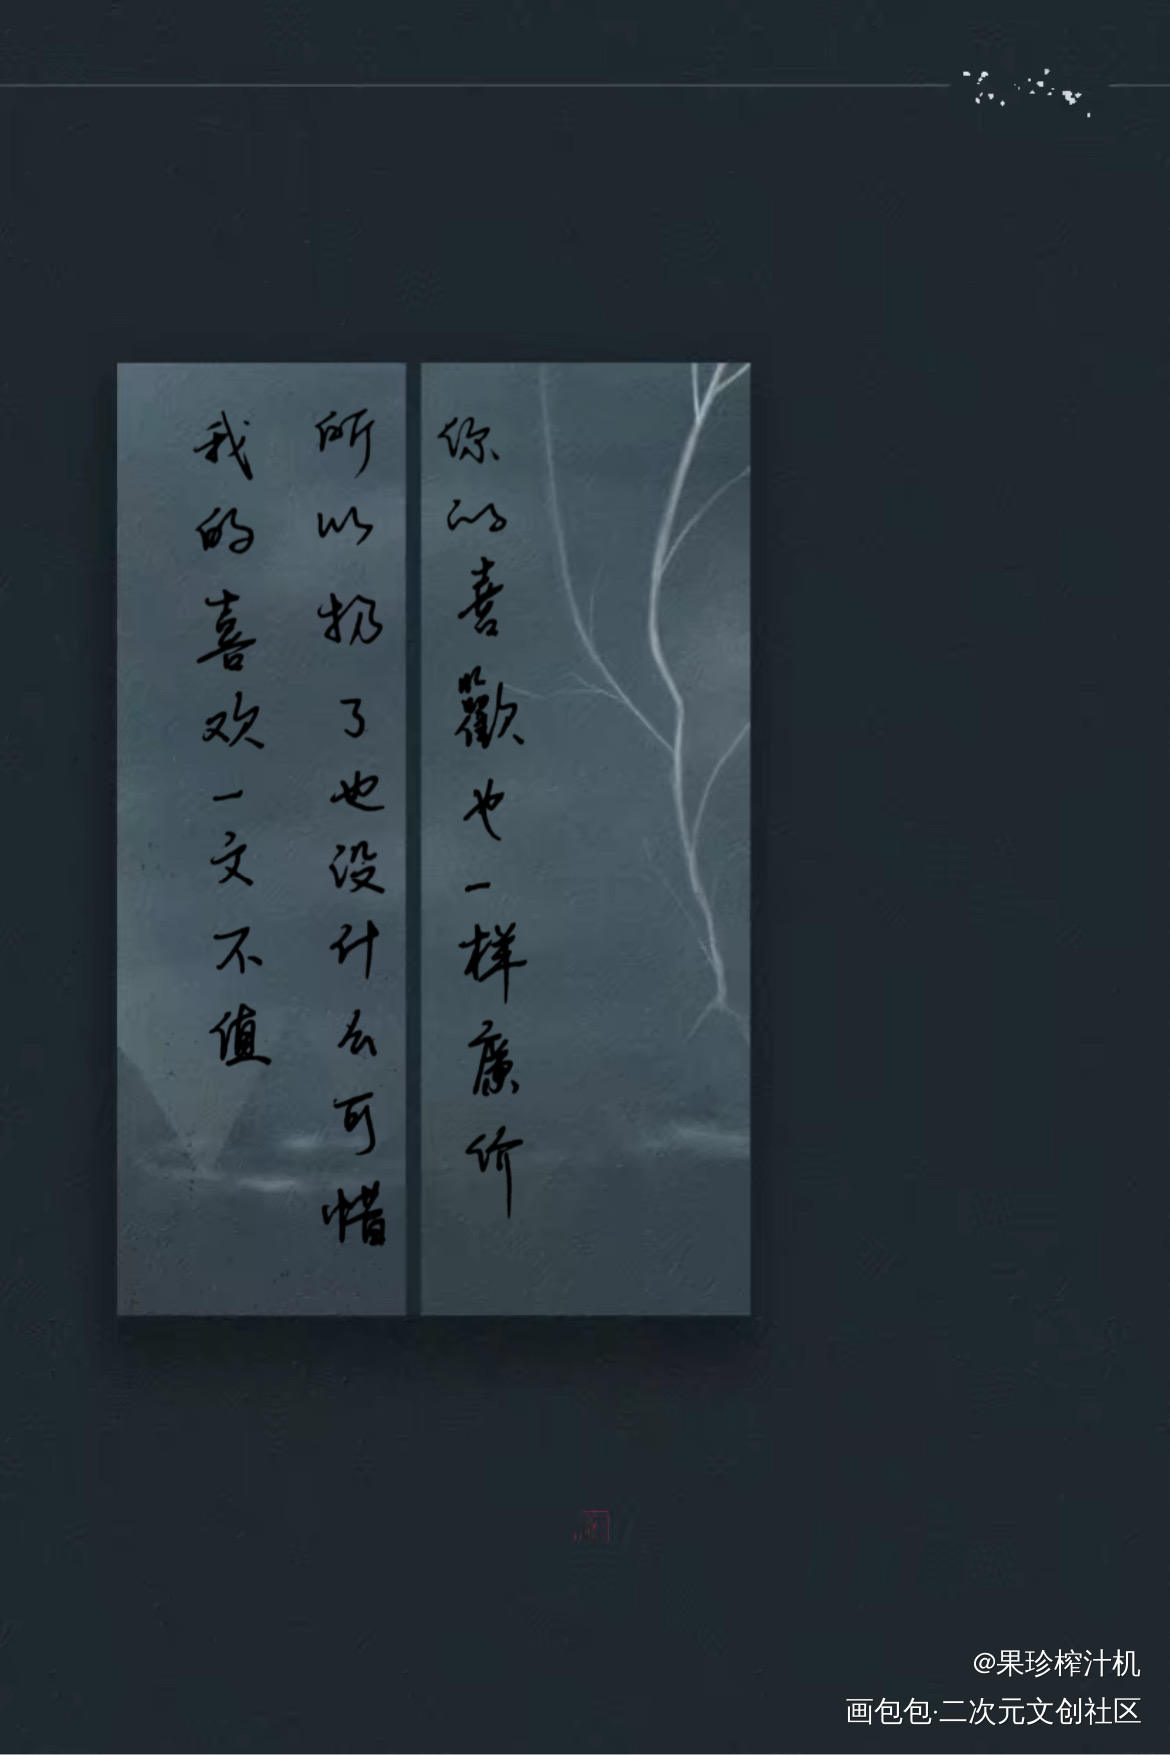 我的喜欢一文不值
所以扔了也没什么可惜
你的喜歡也一样廉价
@果珍榨汁机
画包包·二次元文创社区